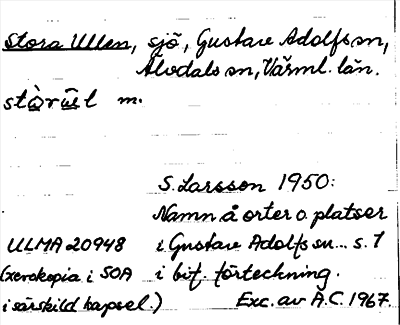 Stora Ullen, sjö, Gustav Adolfs sn,
Älvdals sn, Värml. län.
stòrûel m.
S. Larsson 1950:
Namn å orter o. platser
ULMA 20948 i Gustav Adolfs sn... s. 7
(xerokopia i SOA i bif. förteckning.
i särskild kapsel.) Exc. av A.C. 1967.